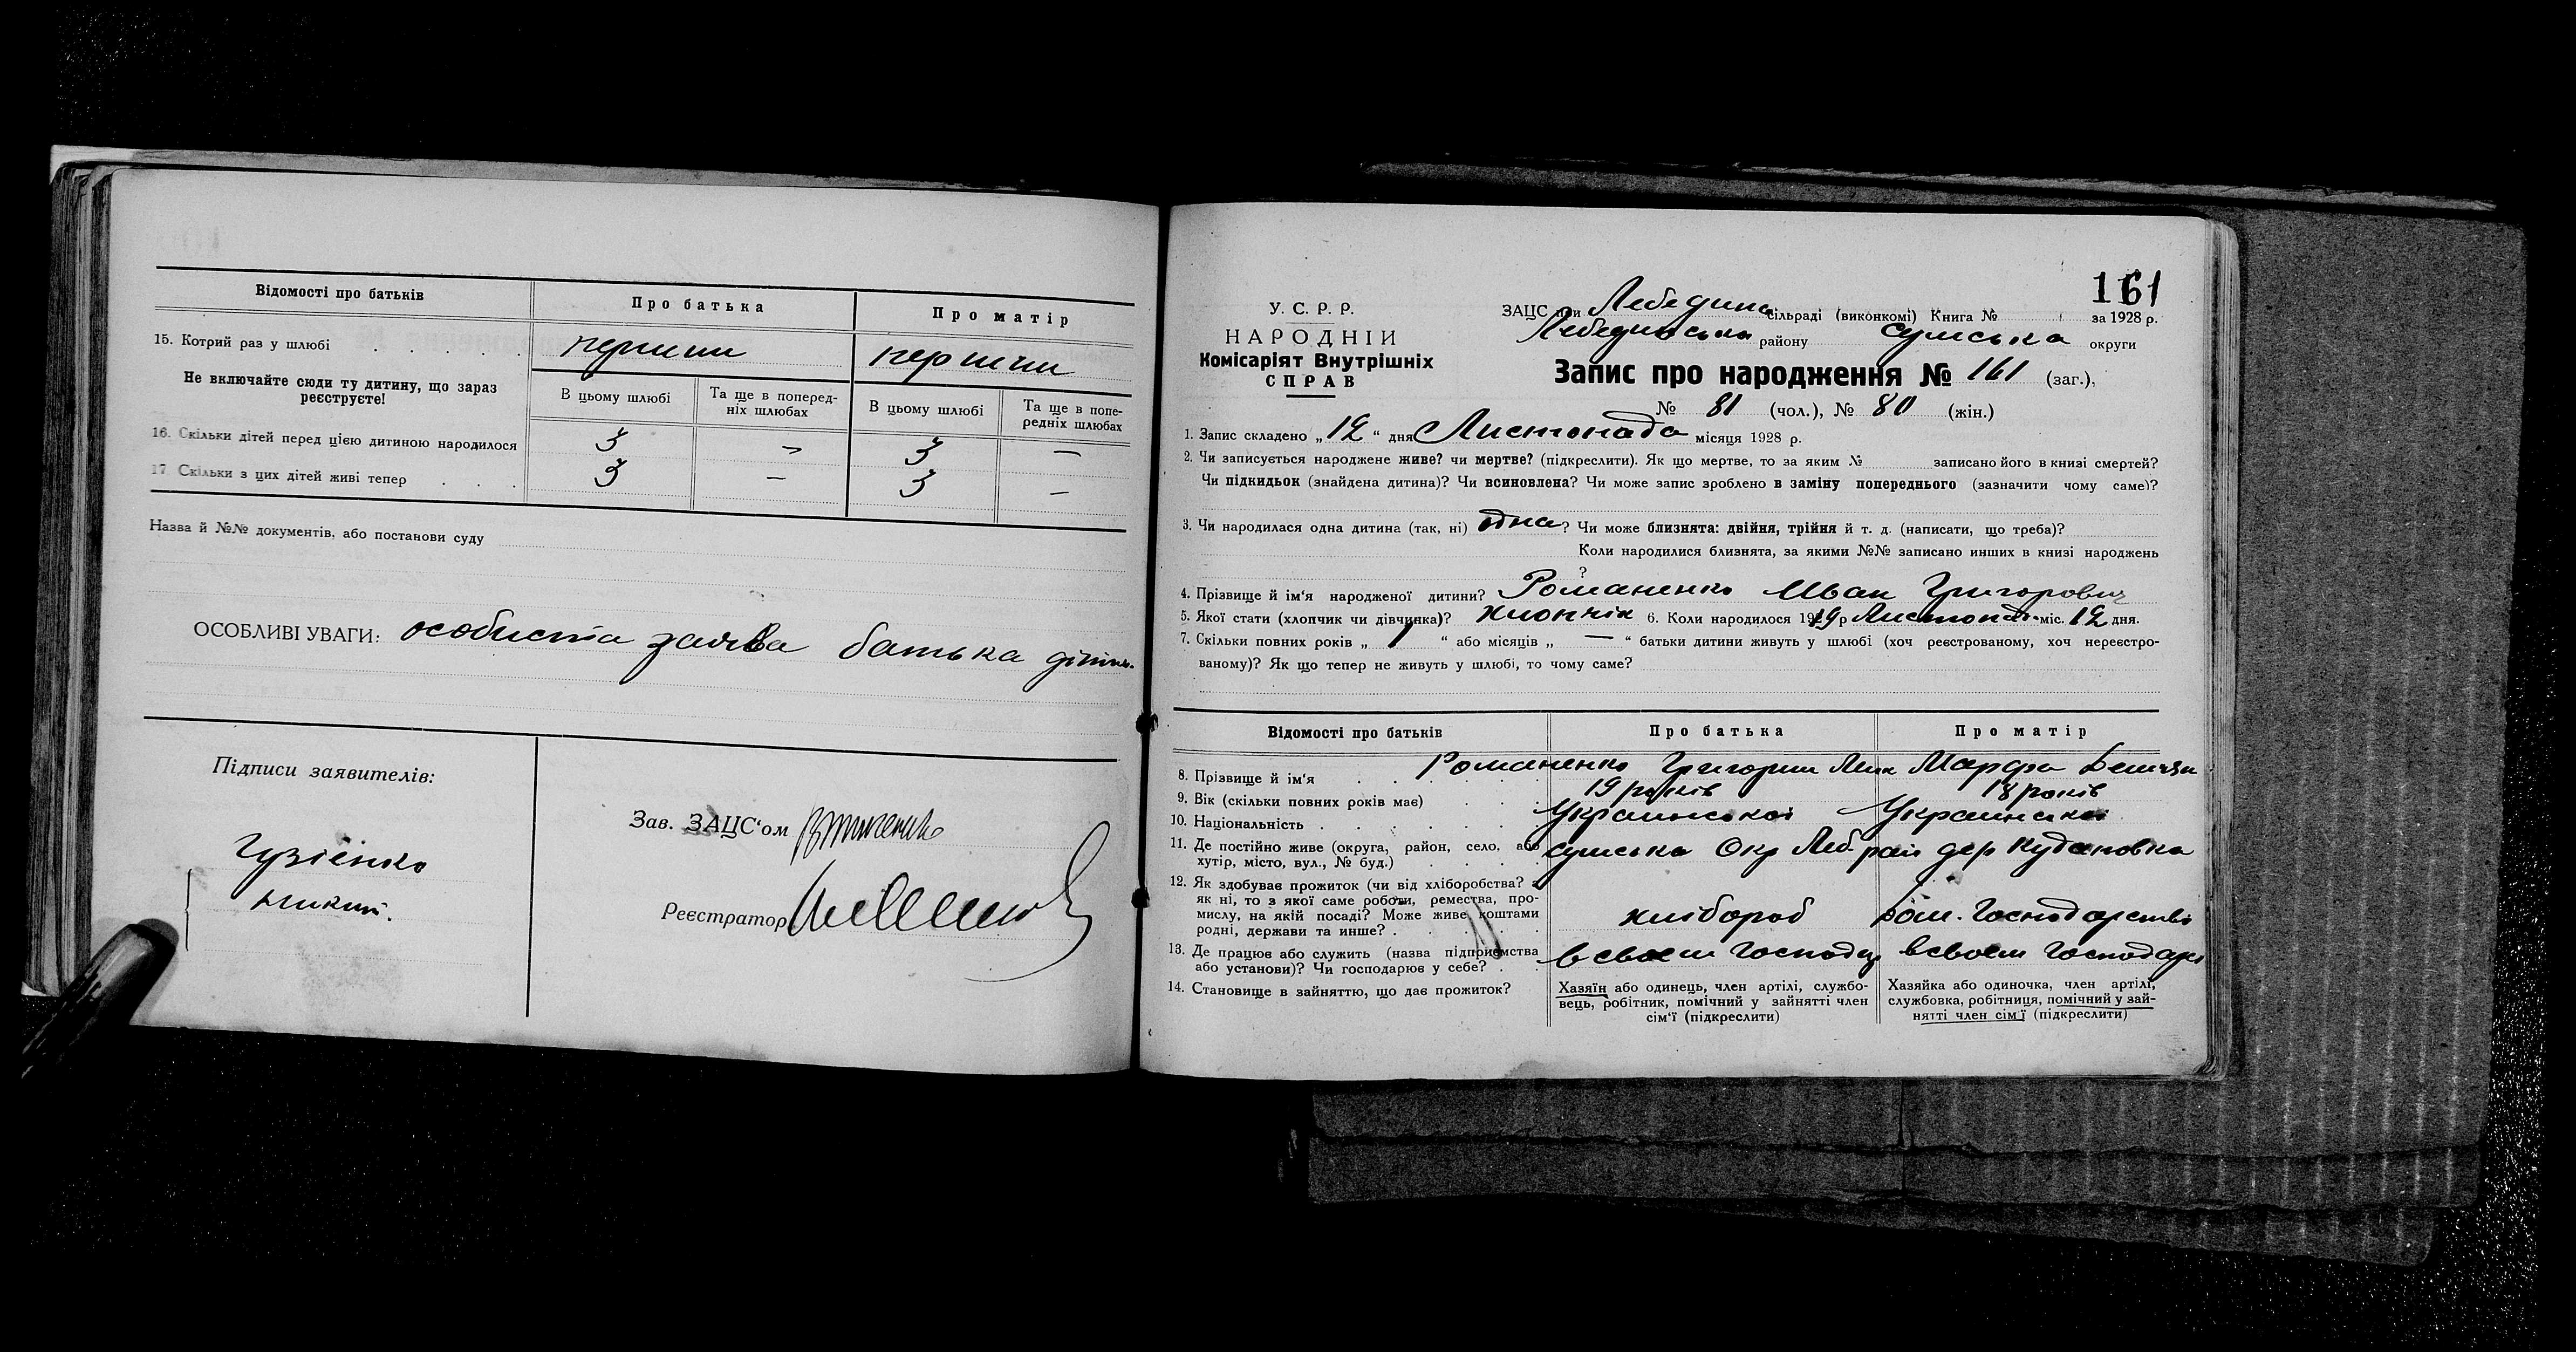 Відомості про батьків
Про батька
Про матір
15. Котрий раз у шлюбі
перший
перший
Не включайте сюди ту дитину, що зараз
реєструєте!
В цьому шлюбі
Та ще в поперед-
ніх шлюбах
В цьому шлюбі
Та ще в попе-
редніх шлюбах
16. Скільки дітей перед цією дитиною народилося
3 — 3 —
17 Скільки з цих дітей живі тепер
3 — 3 —
Назва й №№ документів, або постанови суду
ОСОБЛИВІ УВАГИ: особиста заява батька
Підписи заявителів:
Гузіенко
Зав. ЗАЦС'ом
Реєстратор
161
У. С. Р. Р.
НАРОДНІЙ
Комісаріят Внутрішніх
СПРАВ
ЗАЦС при Лебединс сільраді (виконкомі) Книга № за 1928 р.
Лебединська району Сумська округи
Запис про народження № 161 (заг.),
№ 81 (чол.), № 80 (жін.)
1. Запис складено „12“ дня Листопада місяця 1928 р.
2. Чи записується народжене живе? чи мертве? (підкреслити). Як що мертве, то за яким № записано його в книзі смертей?
Чи підкидьок (знайдена дитина)? Чи всиновлена? Чи може запис зроблено в заміну попереднього (зазначити чому саме)?
3. Чи народилася одна дитина (так, ні) одна? Чи може близнята: двійня, трійня й т. д. (написати, що треба)?
Коли народилися близнята, за якими №№ записано инших в книзі народжень
?
4. Прізвище й ім'я народженої дитини? Романенко Иван Григорович
5. Якої стати (хлопчик чи дівчинка)? хлопчік 6. Коли народилося Листопад міс. 12 дня.
7. Скільки повних років „ 1 “ або місяців „ — “ батьки дитини живуть у шлюбі (хоч реєстрованому, хоч нереєстро-
ваному)? Як що тепер не живуть у шлюбі, то чому саме?
Відомості про батьків
Про батька
Про матір
8. Прізвище й ім'я
Романенко Григорий
Марфа
9. Вік (скільки повних років має)
19 років
18 років
10. Національність
Украинської
Украинської
11. Де постійно живе (округа, район, село, або
хутір, місто, вул., № буд.)
Сумська Окр Леб. рай дер Кудановка
12. Як здобуває прожиток (чи від хліборобства?
як ні, то з якої саме роботи, ремества, про-
мислу, на якій посаді? Може живе коштами
родні, держави та инше?
хлібороб
дом. Господарство
13. Де працює або служить (назва підприємства
або установи)? Чи господарює у себе?
в своем Господар
в своем Господарс
14. Становище в зайняттю, що дає прожиток?
Хазяїн або одинець, член артілі, службо-
вець, робітник, помічний у зайнятті член
сім'ї (підкреслити)
Хазяйка або одиночка, член артілі,
службовка, робітниця, помічний у зай-
нятті член сім'ї (підкреслити)